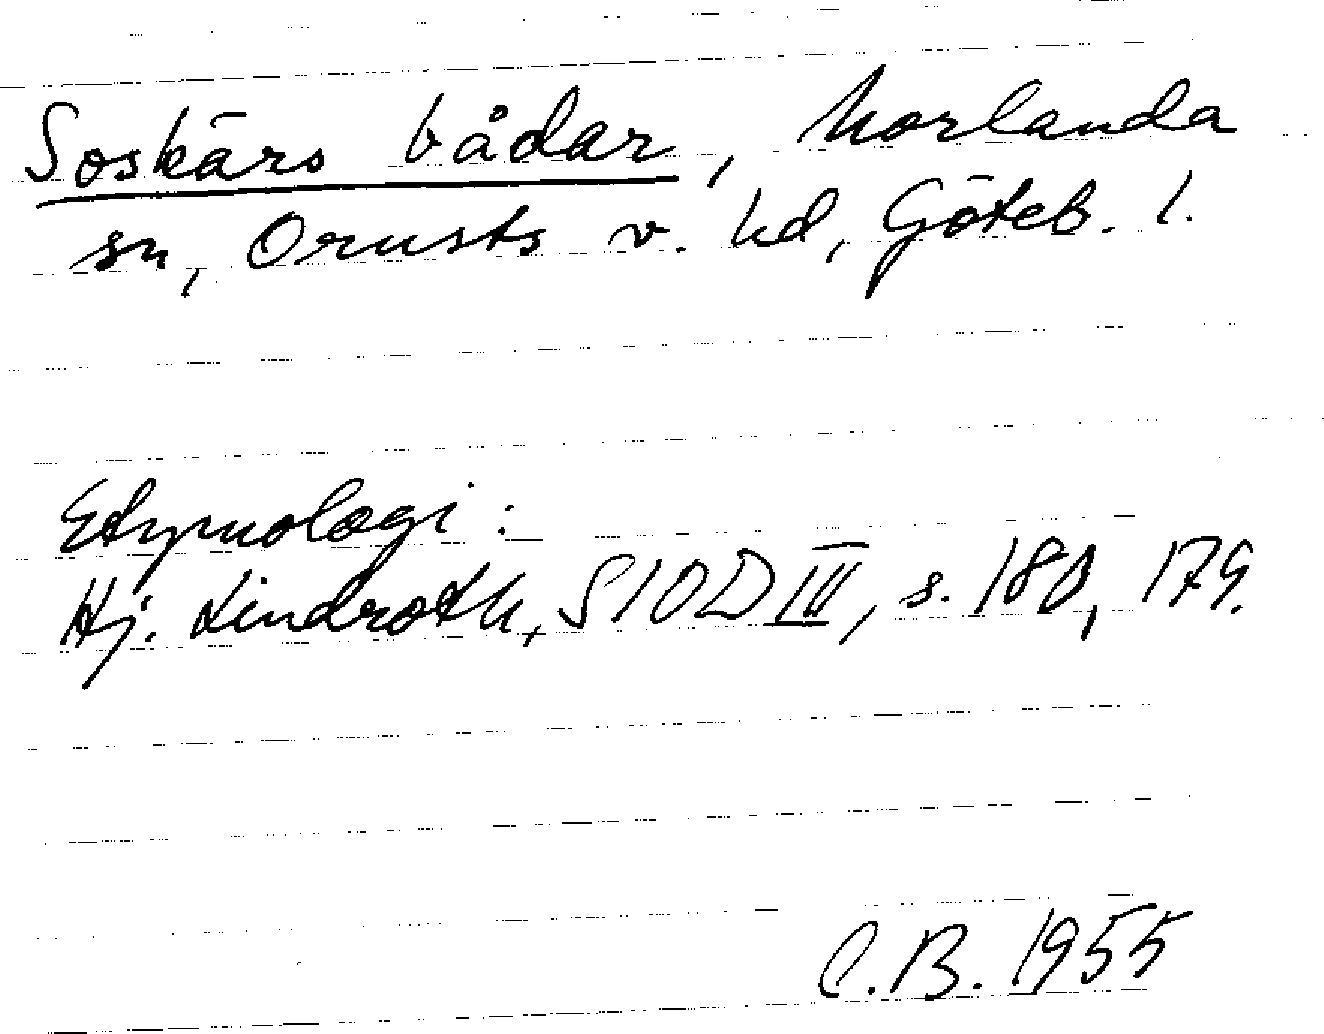 Soskärs bådar, Morlanda
sn, Orusts v. hd, Göteb. l.
Etymologi:
Hj. Lindroth, SIOD III, s. 180, 179.
C.B. 1955